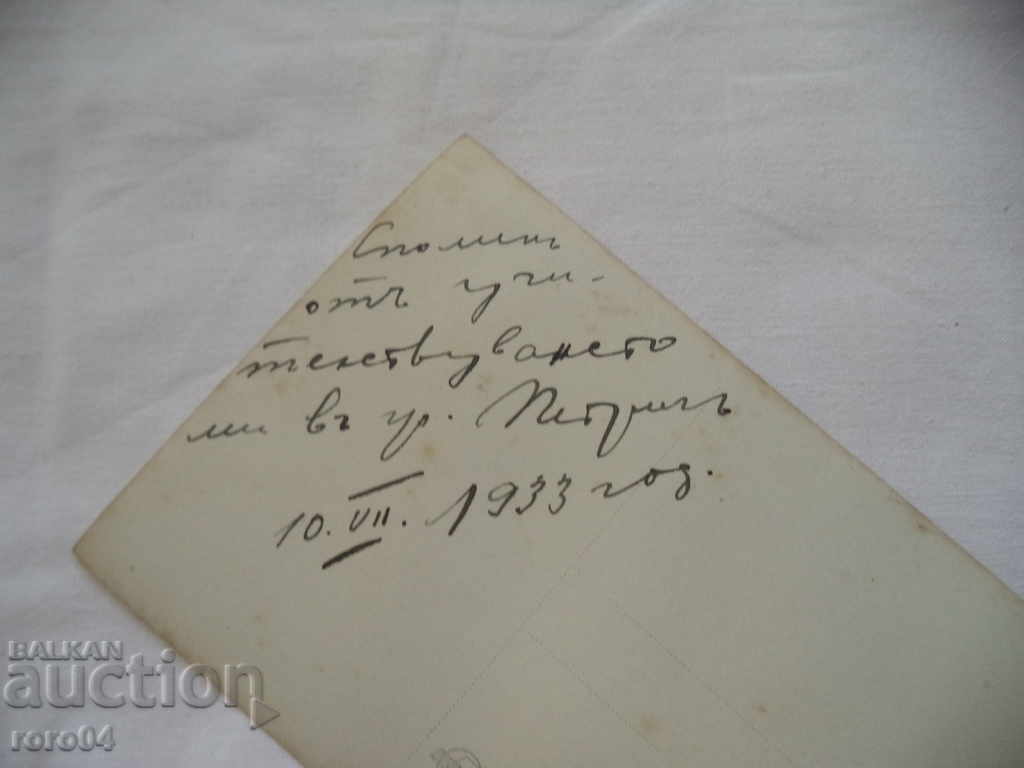 Споменъ
отъ учи-
телствуването
ми въ гр. Петричъ
10. VII. 1933 год.
BALKAN
auction
roro04